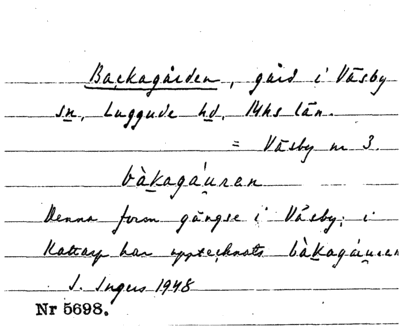 Backagården, gård i Väsby
sn, Luggude hd, Mhs län.
= Väsby nr 3.
bàkagáuran
Denna form gängse i Väsby; i
Kattarp har upptecknats bàkagáuran
S. Ingers 1948
Nr 5698.